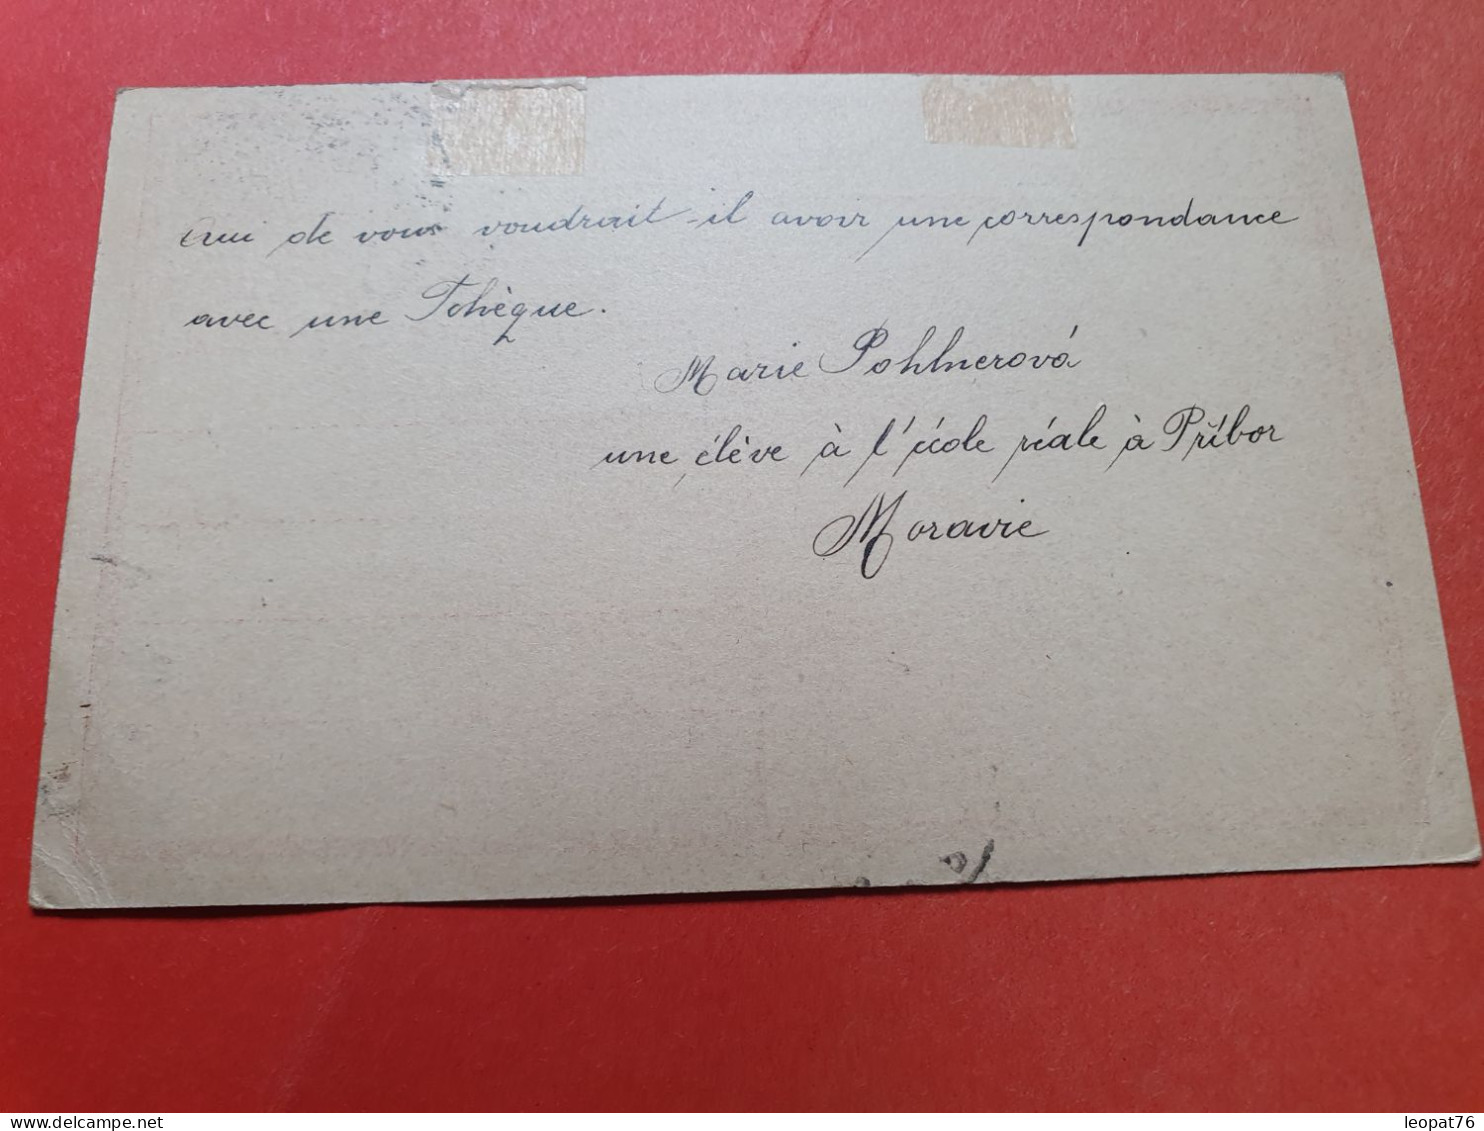 Qui de vous voudrait-il avoir une correspondance
avec une Tchèque.
Marie Pohlnerová
une élève à l'école réale à Příbor
Moravie
delcampe.net
leopat76